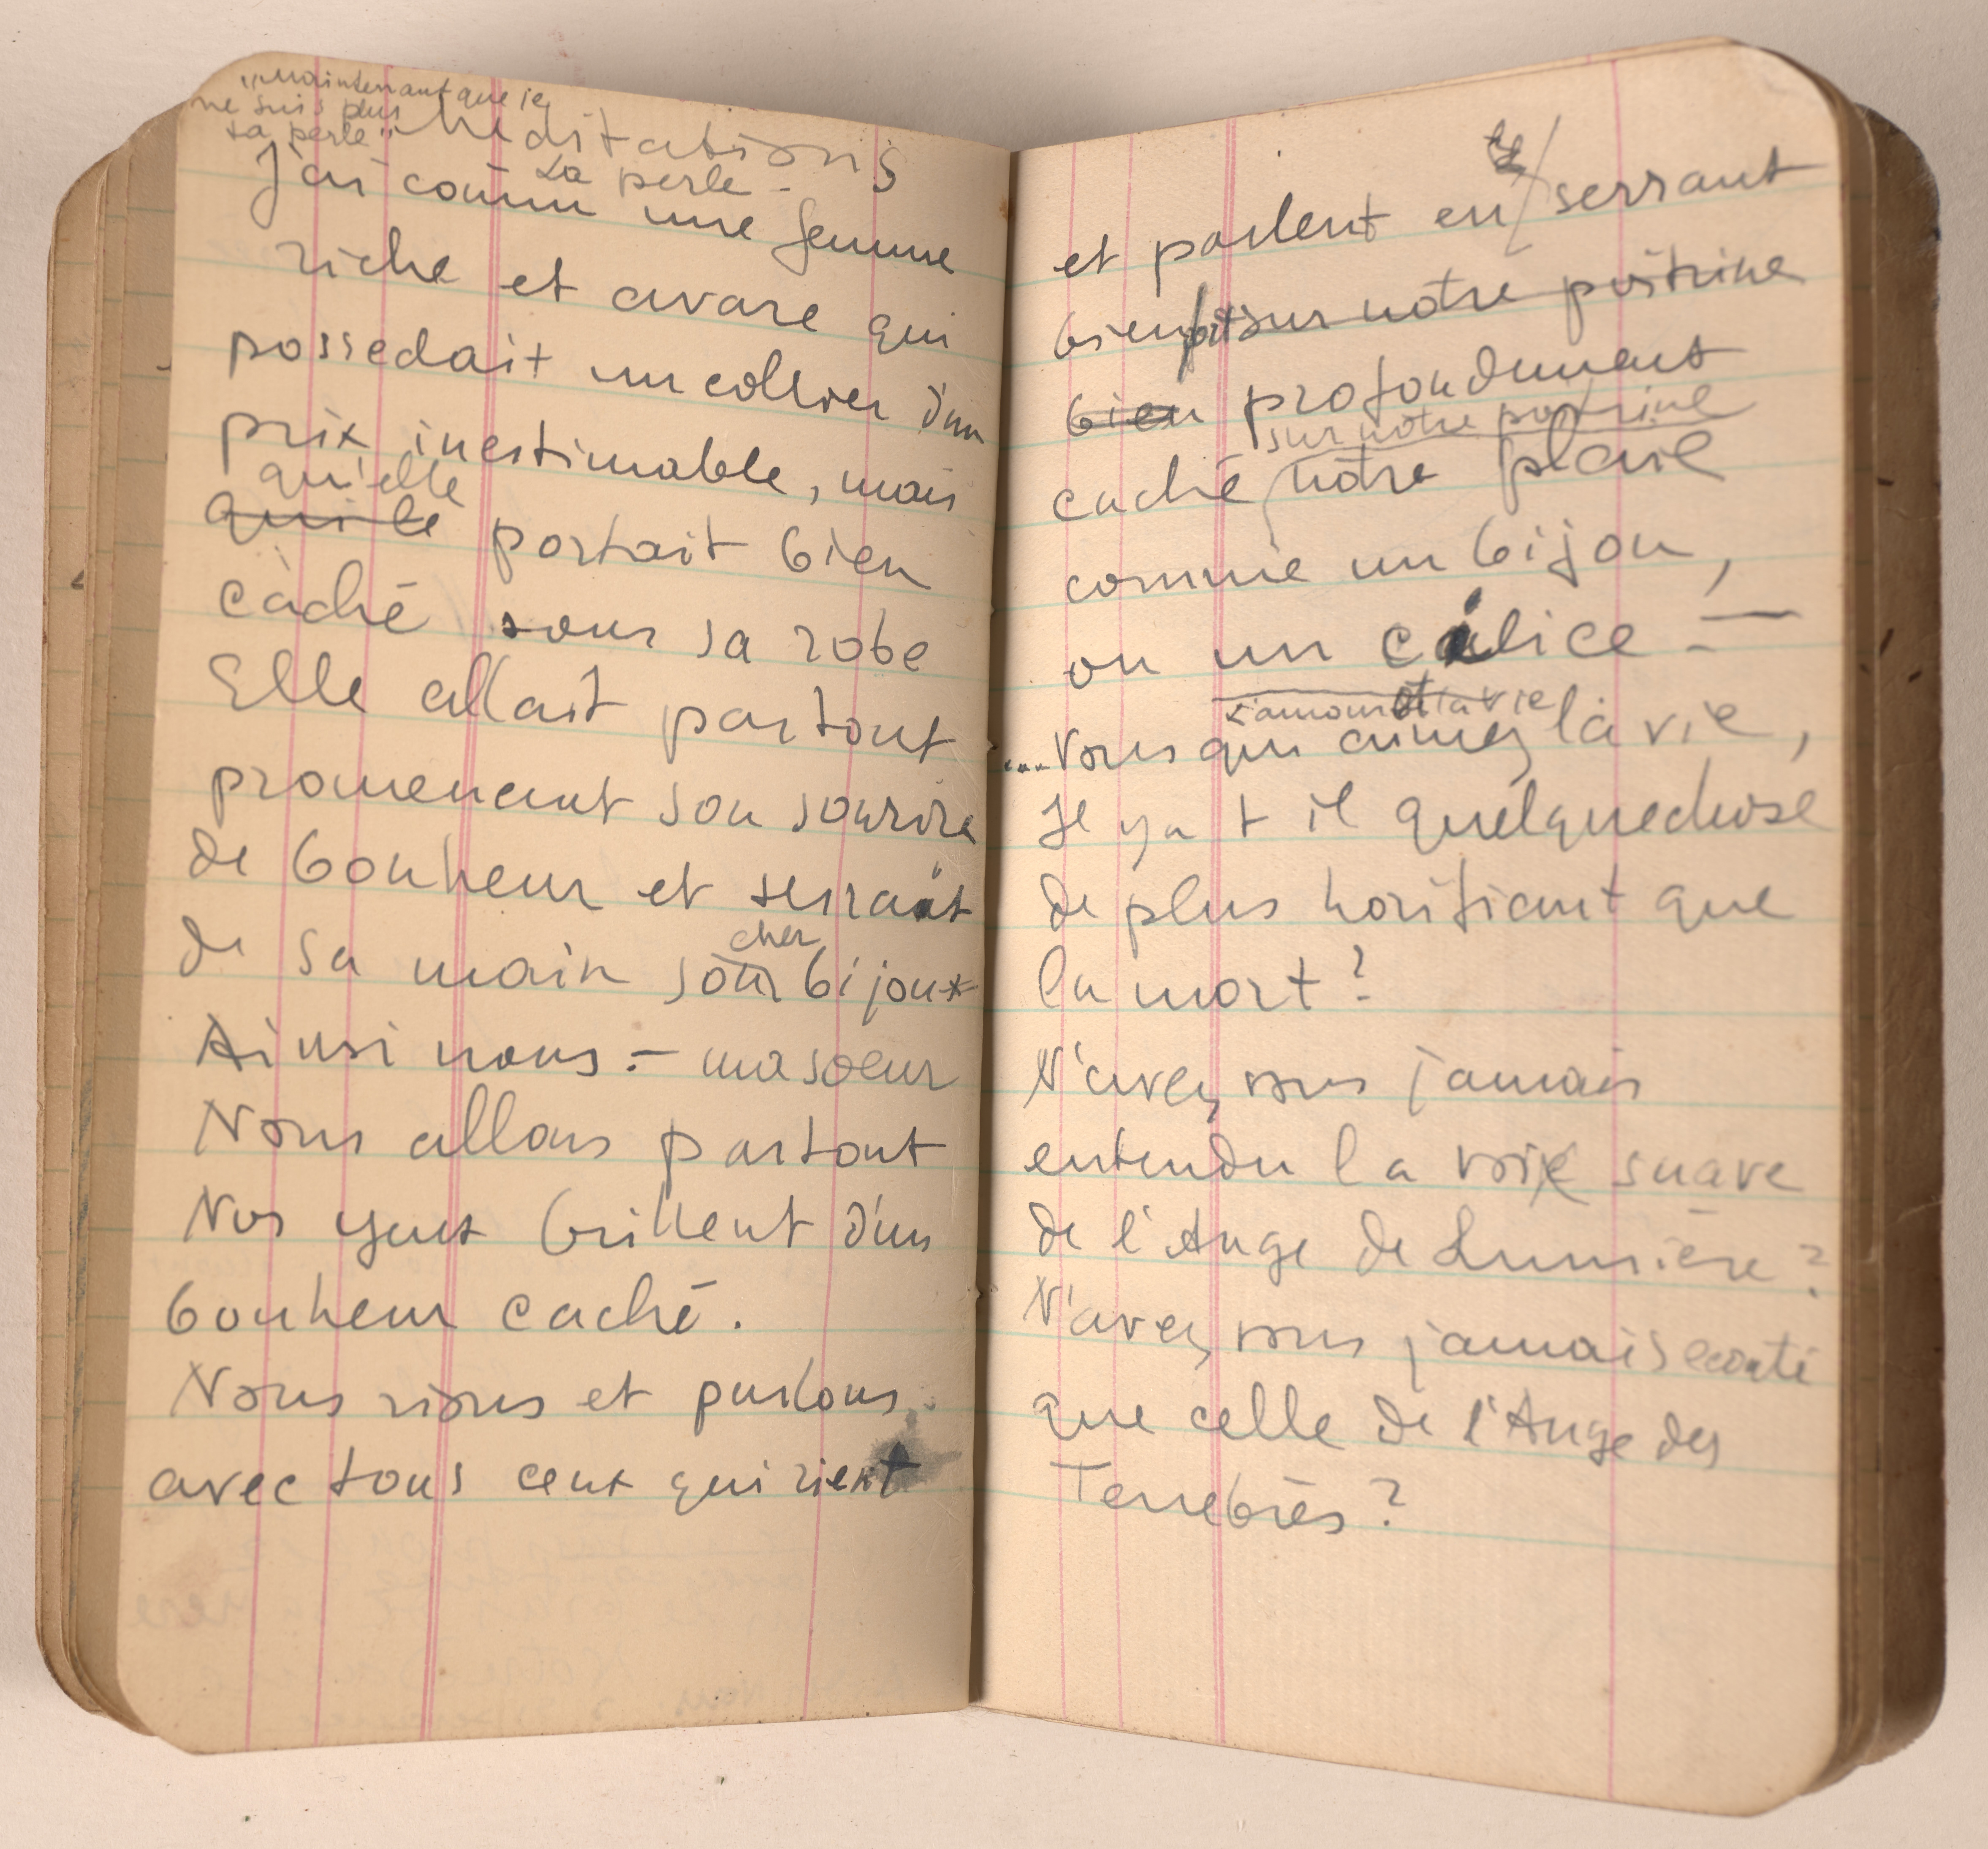 "Maintenant que je
ne suis plus
ta perle"
Meditations
La perle -
J'ai connu une femme
riche et avare qui
possedait un collier d'un
prix inestimable, mais
qu'elle
qui le portait bien
caché sous sa robe
Elle allait partout
promenant son sourire
de bonheur et serrait
cher
de sa main son bijoux
Ainsi nous - ma soeur
Nous allons partout
Nos yeux brillent d'un
bonheur caché.
Nous rions et parlons
avec tous ceux qui rient
et parlent en serrant
bien fort sur notre poitrine
bien profondement
sur notre poitrine
caché notre plaie
comme un bijou,
ou un calice -
L'amour et la vie
... Vous qui aimez la vie,
Il y a t il quelquechose
de plus horifiant que
la mort?
N'avez vous jamais
entendu la voix suave
de l'Ange de Lumière?
N'avez vous jamais ecouté
que celle de l'Ange des
Tenebrès?